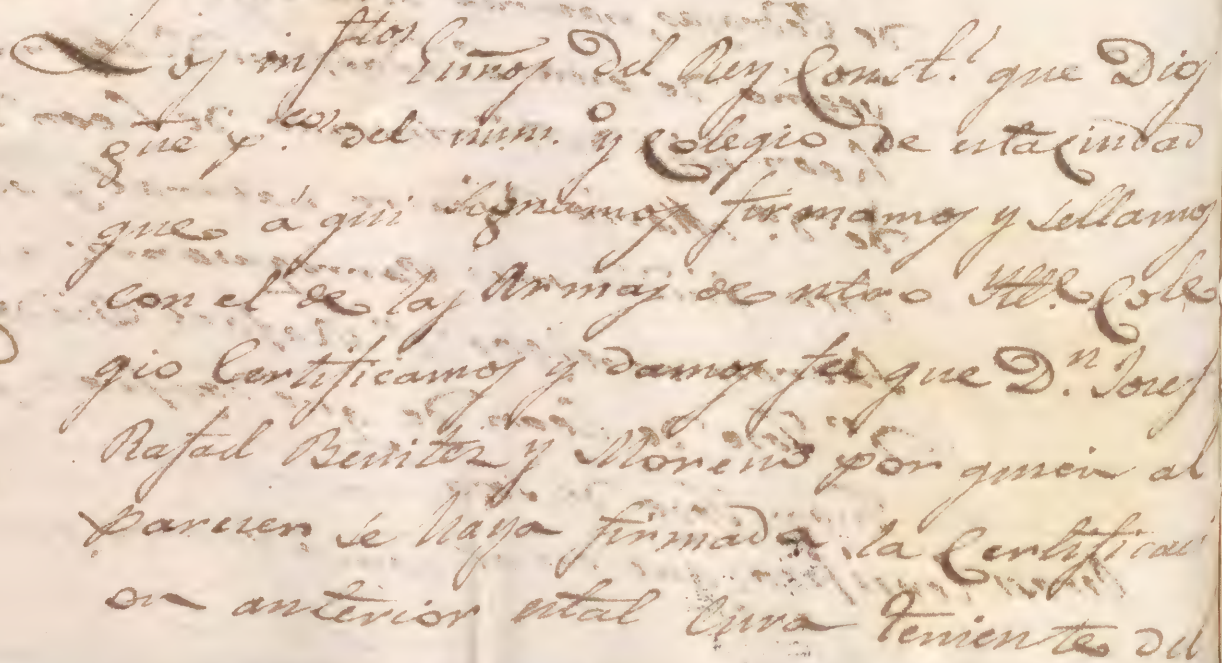 Los infrtos Essnos del Rey Const.l que Dios
gue p.cos del num.o y Colegio de esta Ciudad
que aqui signamos firmamos y sellamos
con el de las Armas de ntro Ytt.e Cole
gio Certificamos y damos fee que D.n Josef
Rafael Benitez y Moreno por quien al
parecer se haya firmada la Certificaci
on anterior es tal Cura teniente del